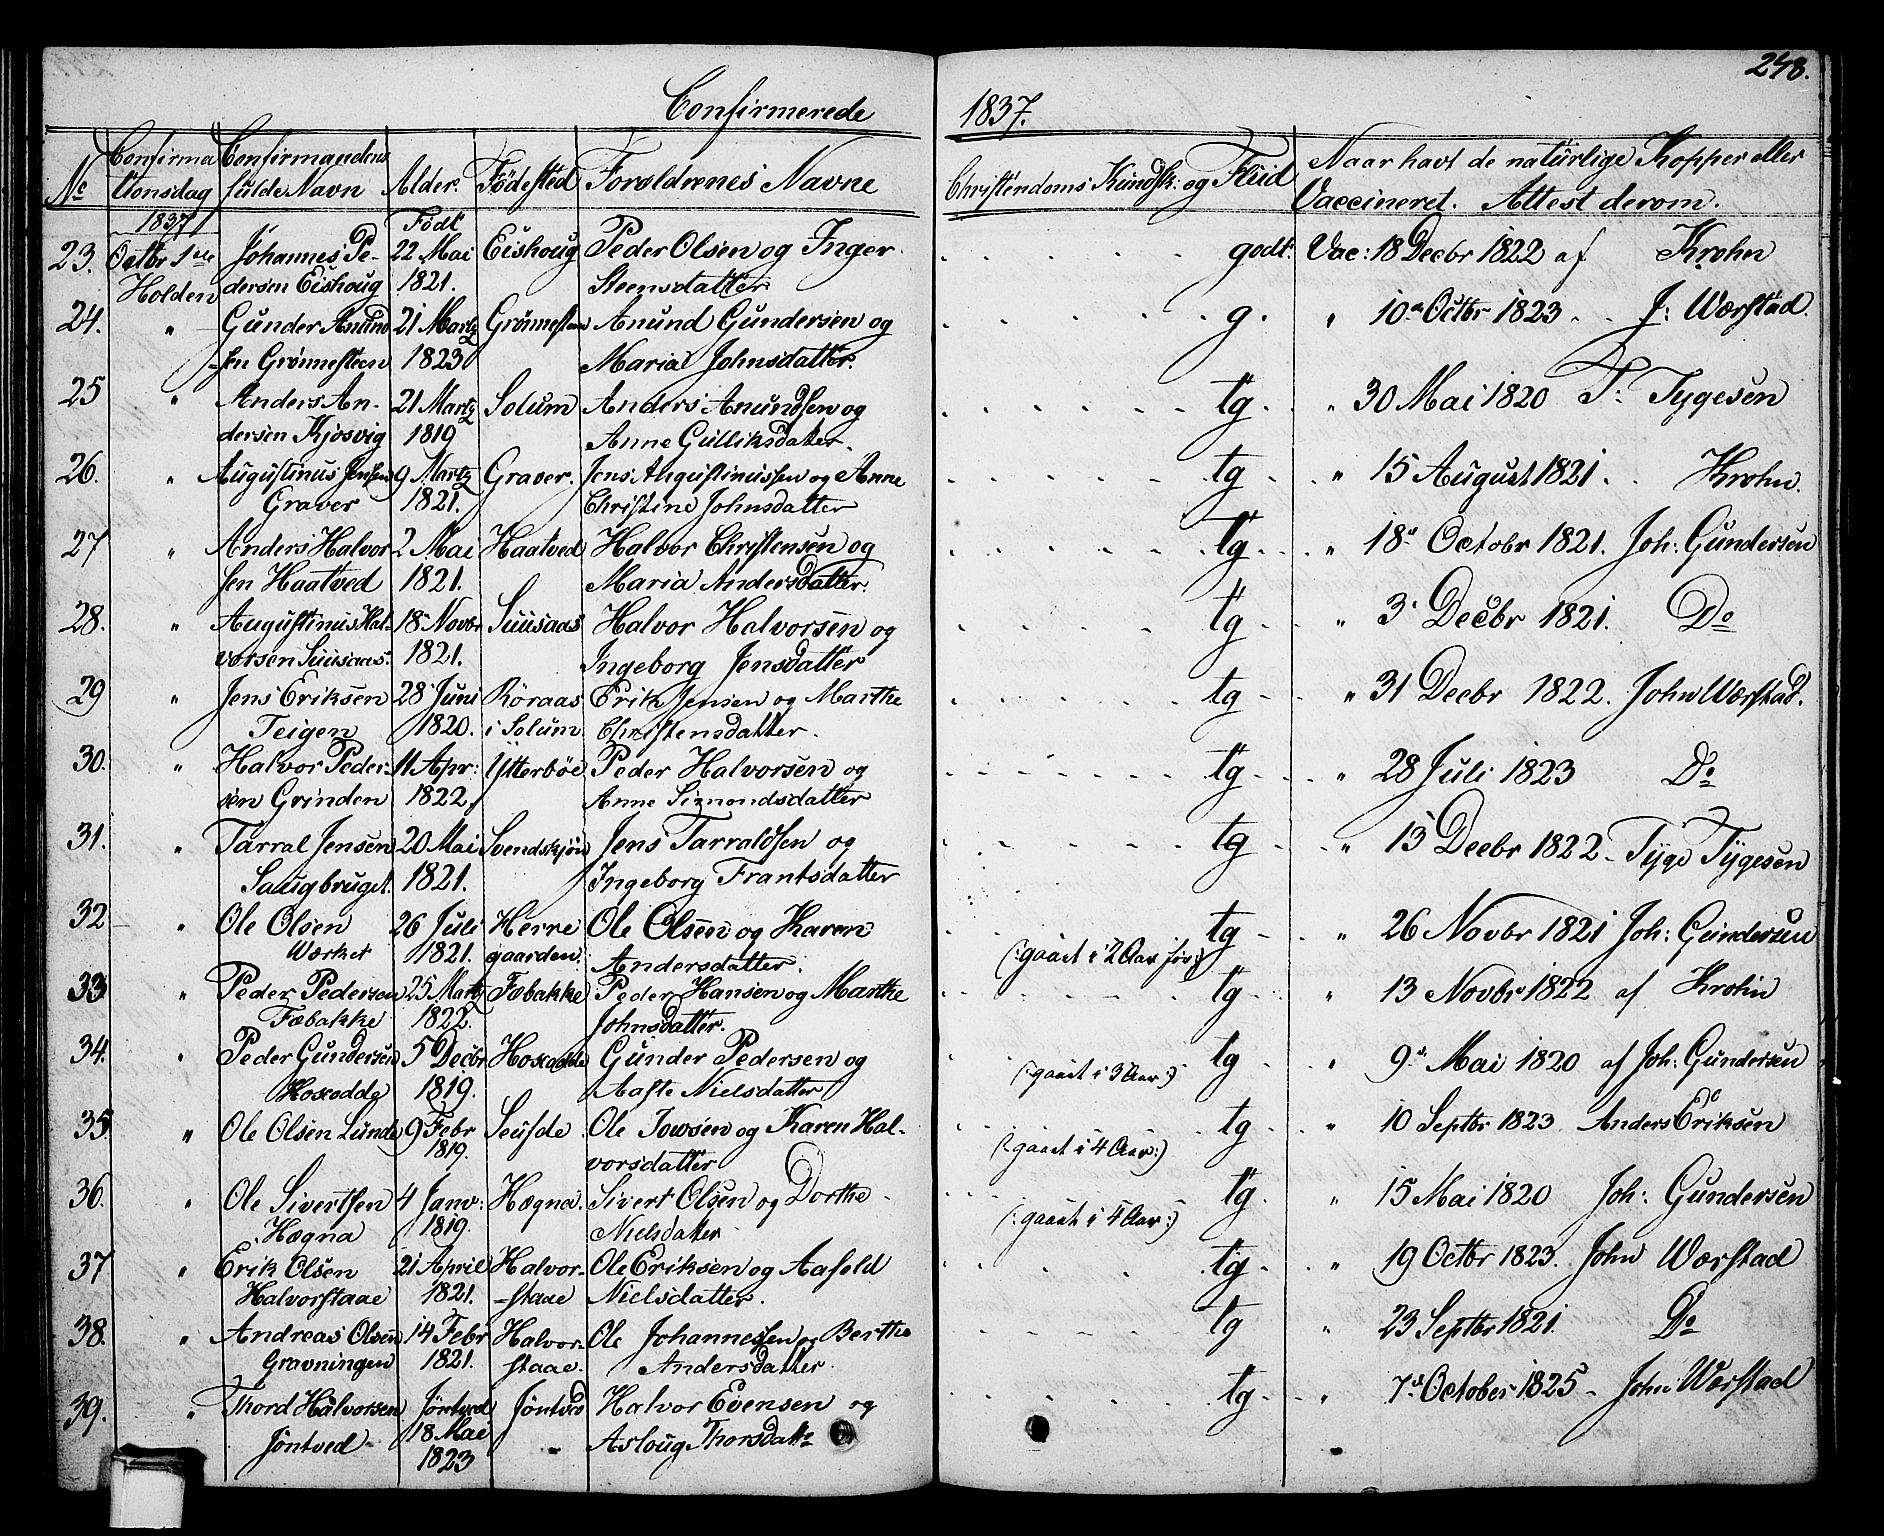 248.
Confirmerede 1837.
No Confirmationsdag Confirmandens fulde Navn Alder. Födested Forældrenes Navne Christendoms Kundsk: og Fliid Naar havt de naturlige Kopper eller Vaccineret. Attest derom.
1837 Födt
23. Octbr 1ste Johannes Pe- 22 Mai Eishoug Peder Olsen og Inger godt. Vac: 18 Decbr 1822 af Krohn
Holden dersen Eishoug 1821. Steensdatter
24. " Gunder Anund 21 Martz Grönnesteen Anund Gundersen og g. " 10de Octbr 1823 J: Wærstad.
-sen Grönnesteen 1823 Maria Johnsdatter.
25 " Anders An- 21 Martz Solum Anders Anundsen og tg. " 30 Mai 1820 T: Tygesen
dersen Kjosvig 1819 Anne Gulliksdatter.
26. " Augustinus Jensen 9 Martz Graver. Jens Augustinussen og Anne tg " 15 August 1821. Krohn.
Graver 1821. Christine Johnsdatter
27 " Anders Halvor 2 Mai Haatved Halvor Christensen og tg " 18de Octobr 1821. Joh: Gundersen
sen Haatved 1821. Maria Andersdatter.
28. " Augustinus Hal- 18 Novbr Suusaas Halvor Halvorsen og tg " 3 Decbr 1821. Do
vorsen Suusaas. 1821. Ingeborg Jensdatter
29 " Jens Eriksen 28 Juni Roraas Erik Jensen og Marthe tg " 31 Decbr 1822. John Wærstad.
Teigen 1820. i Solum Christensdatter.
30. " Halvor Peder- 11 Apr: Ytterböe Peder Halvorsen og tg " 28 Juli 1823 Do
sen Grinden 1822 Anne Simondsdatter
31. " Tarral Jensen 20 Mai Svendskjön Jens Tarraldsen og tg " 13 Decbr 1822 Tyge Tygesen
Saugbruget. 1821. Ingeborg Frantsdatter
32 " Ole Olsen 26 Juli Herre Ole Olsen og Karen tg " 26 Novbr 1821 Joh: Gundersen
Wærket 1821. gaarden. Andersdatter. (:gaaet i 2 Aar for:)
33 " Peder Pedersen 25 Martz Fæbakke Peder Hansen og Marthe tg " 13 Novbr 1822 af Krohn
Fæbakke 1822. Johnsdatter.
34. " Peder Gundersen 5 Decbr Hoxodde Gunder Pedersen og tg " 9de Mai 1820 af Joh: Gundersen
Hoxodde 1819. Aaste Nielsdatter (:gaaet i 3 Aar:)
35 " Ole Olsen Lunde 9 Febr Ole Towsen og Karen Hal- tg " 10 Septbr 1823 Anders Eriksen
1819. vorsdatter (:gaaet i 4 Aar:)
36. " Ole Sivertsen 4 Janv: Hægna. Sivert Olsen og Dorthe tg. " 15 Mai 1820 Joh: Gundersen
Hægna 1819. Nielsdatter (:gaaet i 4 Aar:)
37 " Erik Olsen 21 April Halvor- Ole Eriksen og Aasold tg " 19 Octbr 1823. John Wærstad
Halvorstaae 1821. -staae Nielsdatter.
38. " Andreas Olsen 14 Febr Halvor- Ole Johannessen og Berthe tg " 23 Septbr 1821. Do
Gravningen 1821. staae. Andersdatter.
39. " Thord Halvorsen Jöntved Jöntved Halvor Evensen og tg " 7de October 1825 John Wærstad
Jöntved 18 Mai Asloug Thorsdattr
1823